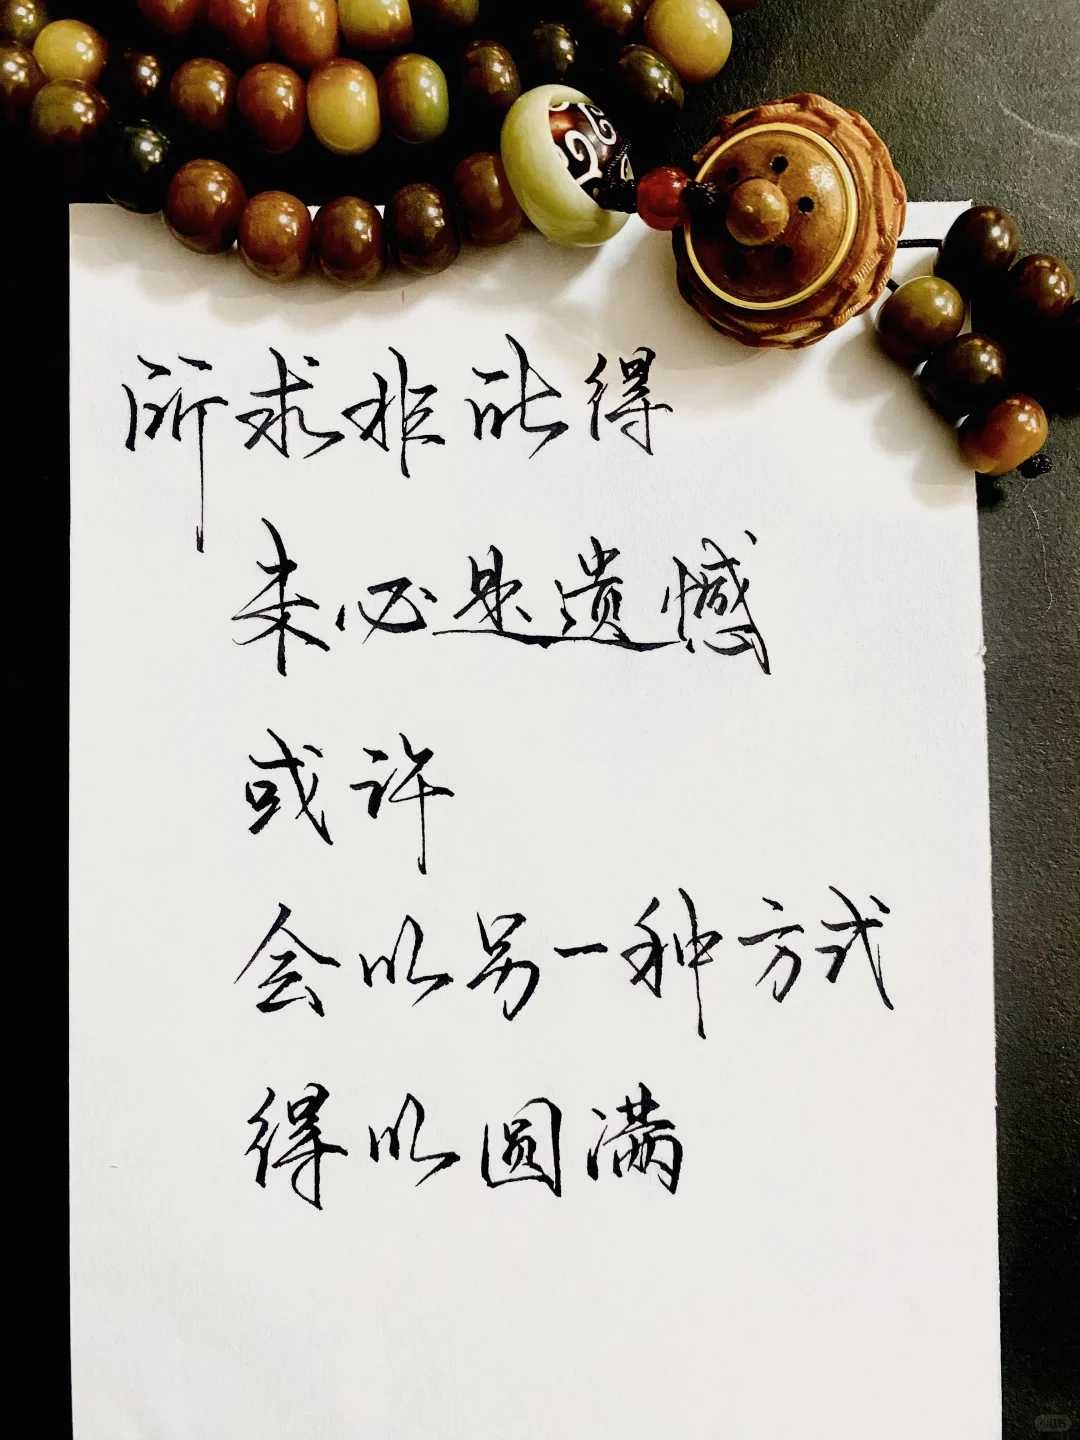 所求非所得
未必是遗憾
或许
会以另一种方式
得以圆满